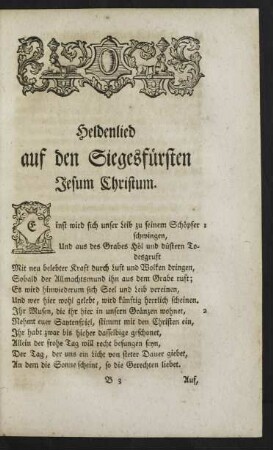 Heldenlied
auf den Siegesfürsten
Jesum Christum.
Einst wird sich unser Leib zu seinem Schöpfer 1
schwingen,
Und aus des Grabes Höl und düstern To-
desgruft
Mit neu belebter Kraft durch Luft und Wolken dringen,
Sobald der Allmachtsmund ihn aus dem Grabe ruft;
Es wird hinwiederum sich Seel und Leib vereinen,
Und wer hier wohl gelebt, wird künftig herrlich scheinen.
Ihr Musen, die ihr hier in unsern Gränzen wohnet, 2
Nehmt euer Santenspiel, stimmt mit den Christen ein,
Ihr habt zwar bis hieher dasselbige geschonet,
Allein der frohe Tag will recht besungen seyn,
Der Tag, der uns ein Licht von steter Dauer giebet,
An dem die Sonne scheint, so die Gerechten liebet.
B 3 Auf,